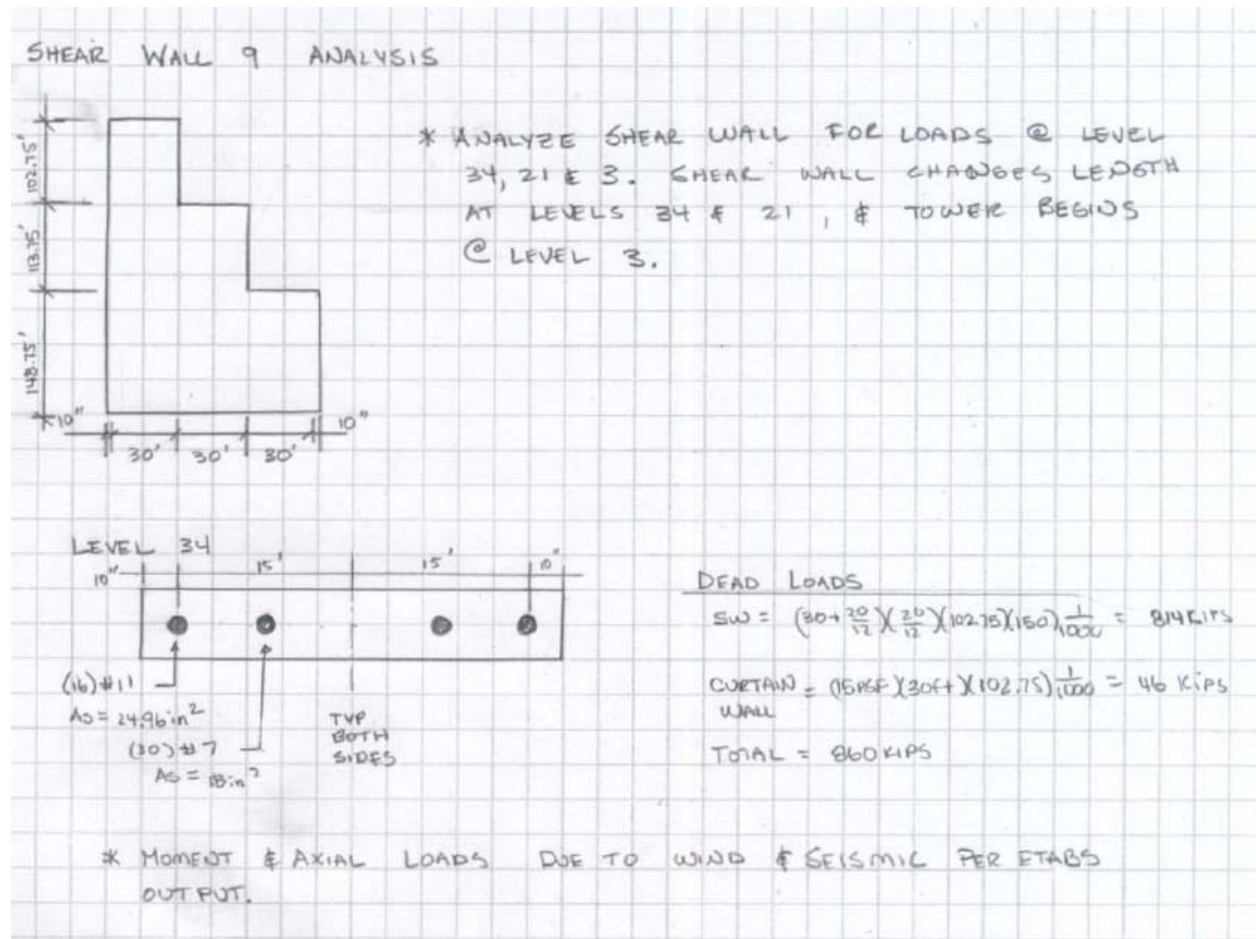 SHEAR WALL 9 ANALYSIS
* ANALYZE SHEAR WALL FOR LOADS @ LEVEL
34, 21 & 3. SHEAR WALL CHANGES LENGTH
AT LEVELS 34 & 21, & TOWER BEGINS
@ LEVEL 3.
102.75'
113.75'
148.75'
10" 10"
30' 30' 30'
LEVEL 34
10" 15' 15' 10"
(16) #11
As = 24.96 in²
(30) #7
As = 18 in²
TYP
BOTH
SIDES
DEAD LOADS
SW = (30+20/12)(20/12)(102.75)(150)1/1000 = 814 KIPS
CURTAIN = (15PSF)(30ft)(102.75)1/1000 = 46 KIPS
WALL
TOTAL = 860 KIPS
* MOMENT & AXIAL LOADS DUE TO WIND & SEISMIC PER ETABS
OUTPUT.